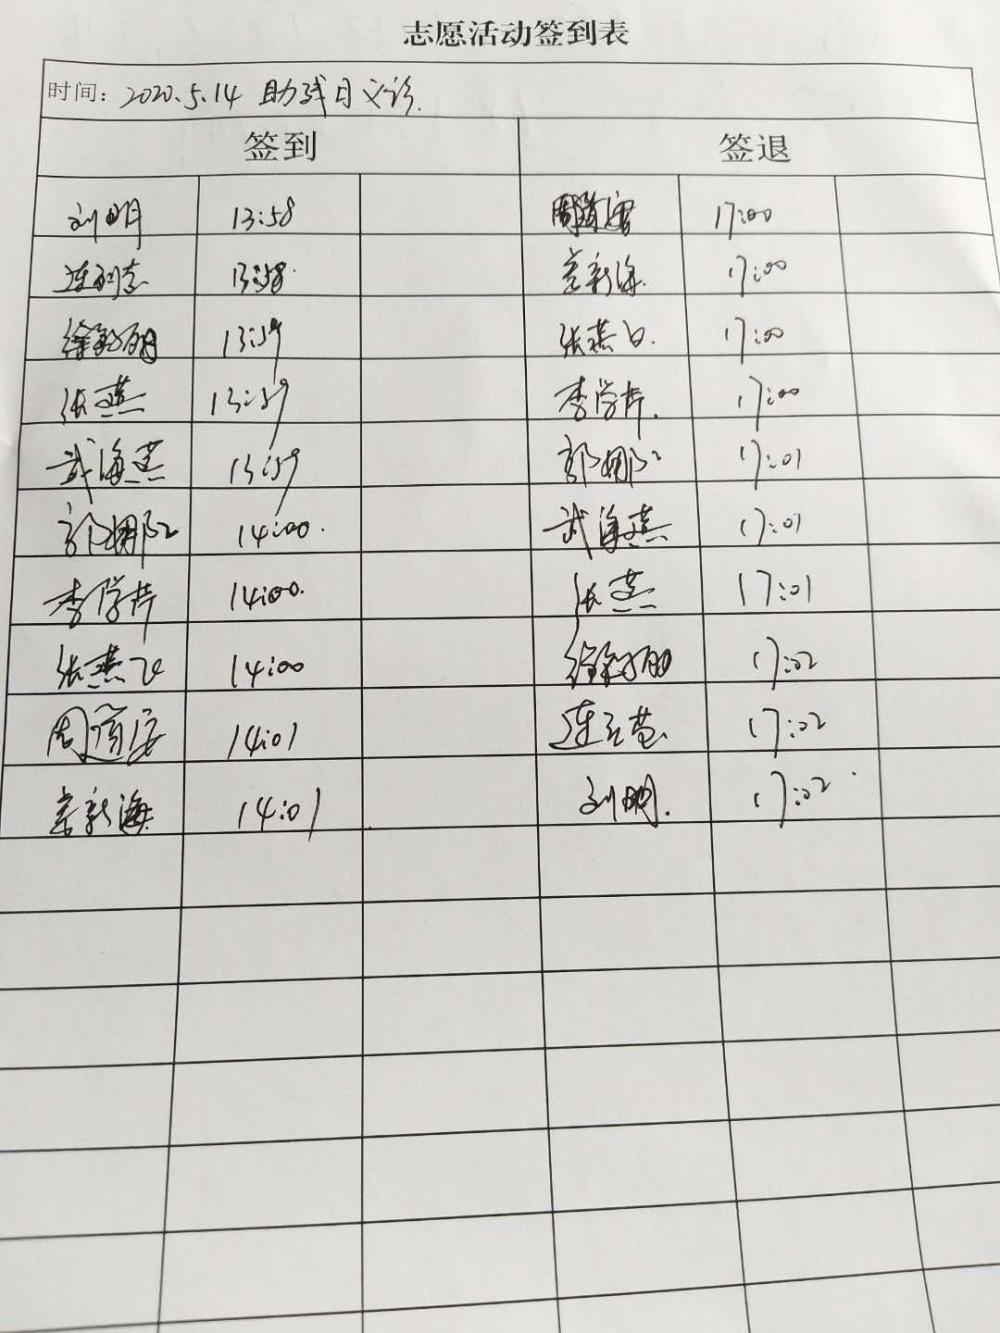 志愿活动签到表
时间：2020.5.14 助残日义诊.
签到 签退
刘明 13:58 17:00
13:58. 17:00
13:59 张燕 17:00
张燕 13:59 李学芹. 17:00
武海燕 13:59 郭娜 17:01
郭娜 14:00. 武海燕 17:01
李学芹 14:00. 张燕 17:01
张燕飞 14:00 17:02
周道 14:01 连 17:02
新海 14:01 刘明. 17:02